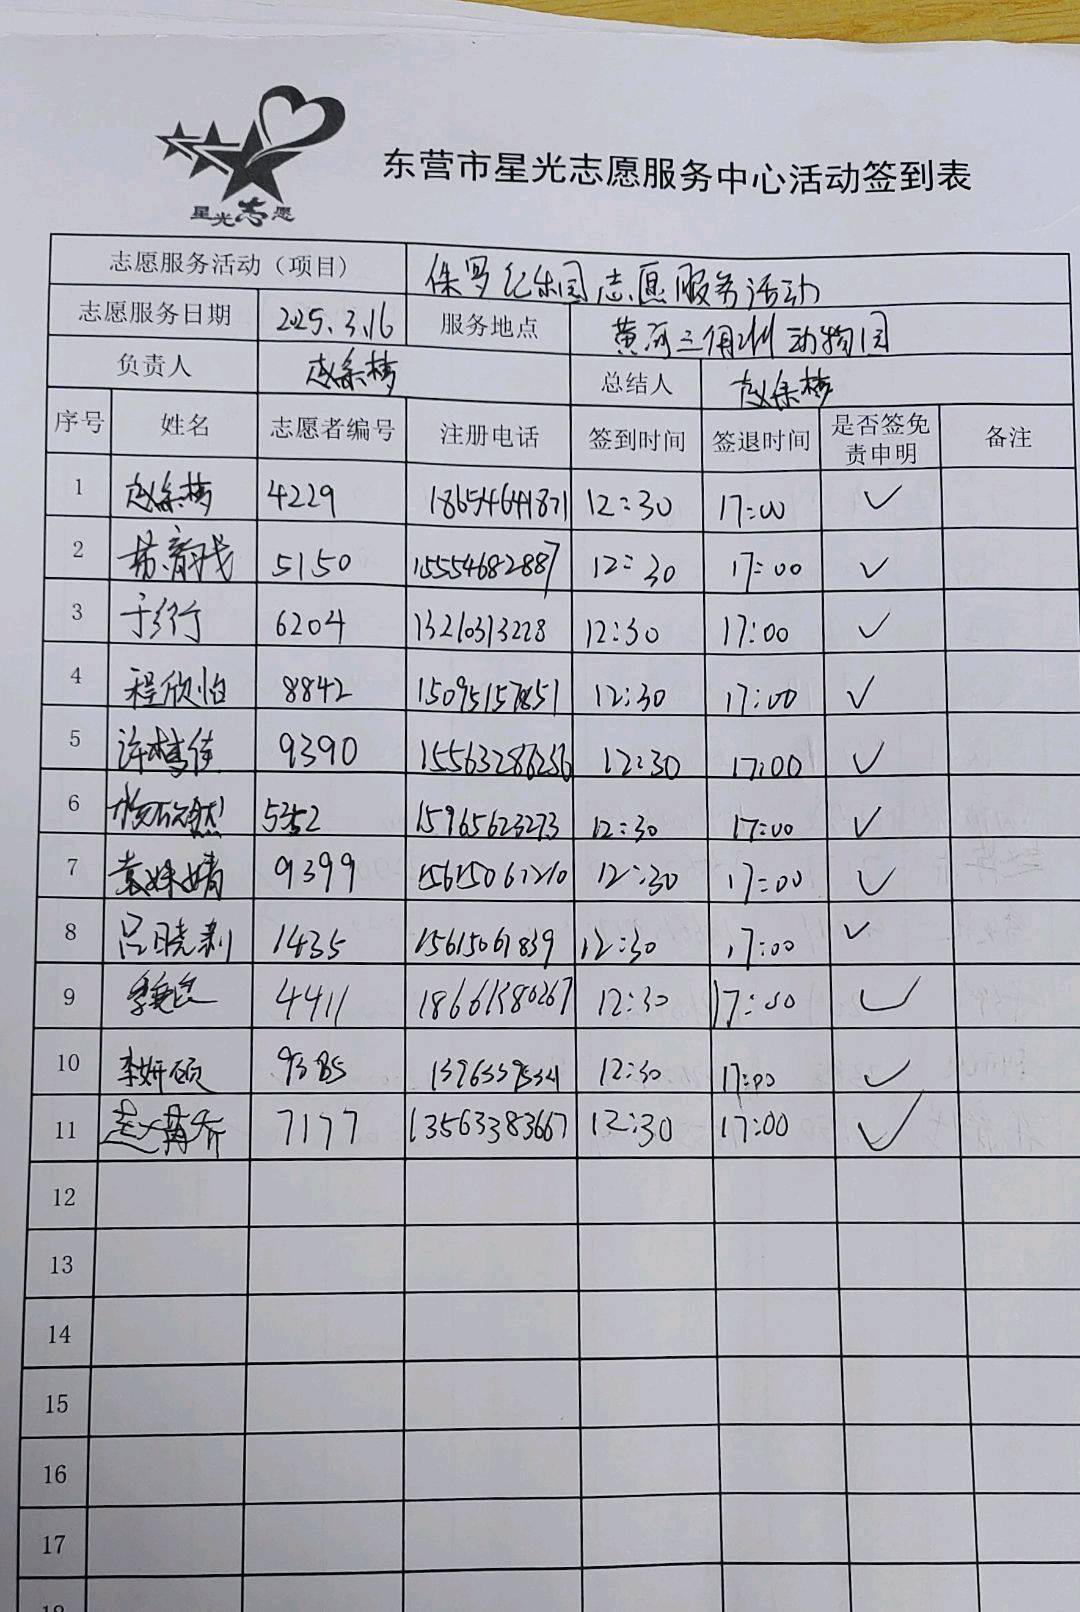 星光志愿
东营市星光志愿服务中心活动签到表
志愿服务活动（项目） 侏罗纪乐园志愿服务活动
志愿服务日期 2025.3.16 服务地点 黄河三角洲动物园
负责人 总结人
序号 姓名 志愿者编号 注册电话 签到时间 签退时间 是否签免责申明 备注
1 4229 18654641871 12:30 17:00 ✓
2 5150 15554682887 12:30 17:00 ✓
3 于行 6204 13210313228 12:30 17:00 ✓
4 程欣怡 8842 15095157851 12:30 17:00 ✓
5 许梦佳 9390 15563286236 12:30 17:00 ✓
6 5352 15965623273 12:30 17:00 ✓
7 袁姝婧 9399 15615061210 12:30 17:00 ✓
8 吕晓 1435 15615061839 12:30 17:00 ✓
9 4411 12:30 17:00 ✓
10 李妍硕 9385 12:30 17:00 ✓
11 赵 7177 13563383667 12:30 17:00 ✓
12
13
14
15
16
17
18